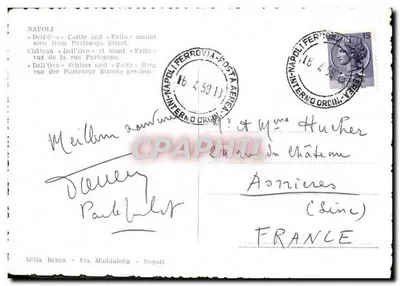 NAPOLI
« Dell'Ovo » Castle and « Faito » mount
seen from Partenope Street.
Château « Dell'Ovo » et mont « Faito »
vus de la rue Partenope.
« Dell'Ovo » Schloss und « Faito » Berg
von der Partenope Strasse gesehen
NAPOLI FERROVIA-POSTA AEREA
INTERNO ORDIN.
NAPOLI FERROVIA-POSTA AEREA
INTERNO ORDIN.
15
Meilleur
CPARAMA
et Mme Hucher
rue du Château
Asnières
(Seine)
FRANCE
Ditta Roma - Via Maddalena - Napoli